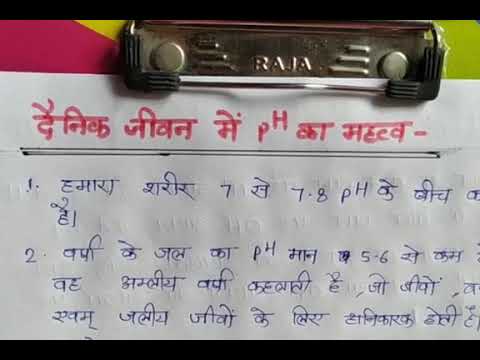 RAJA
दैनिक जीवन में pH का महत्व -
1. हमारा शरीर 7 से 7.8 pH के बीच
है।
2. वर्षा के जल का pH मान 5-6 से कम
वह अम्लीय वर्षा कहलाती है, जो जीवों,
एवम् जलीय जीवों के लिए हानिकारक होती है।